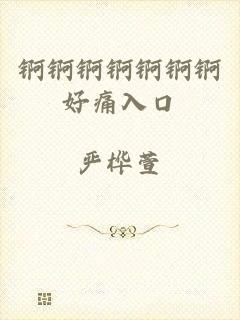 锕锕锕锕锕锕锕
好痛入口
严桦萱